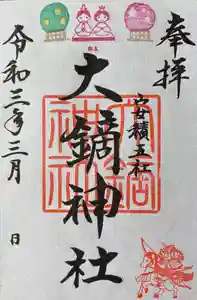 奉拝
安積五社
大鏑神社
令和三年三月 日